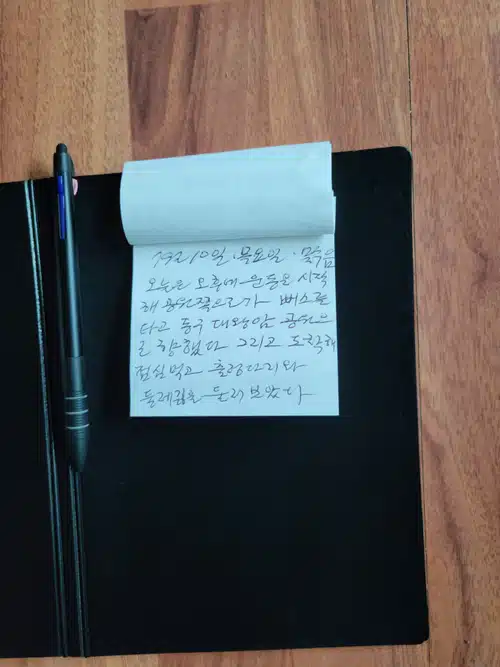 7월 10일 · 목요일 · 맑음
오늘은 오후에 운동을 시작
해 공원쪽으로가 버스를
타고 동구 대왕암 공원으
로 향했다 그리고 도착해
점심먹고 출렁다리와
둘레길을 둘러보았다